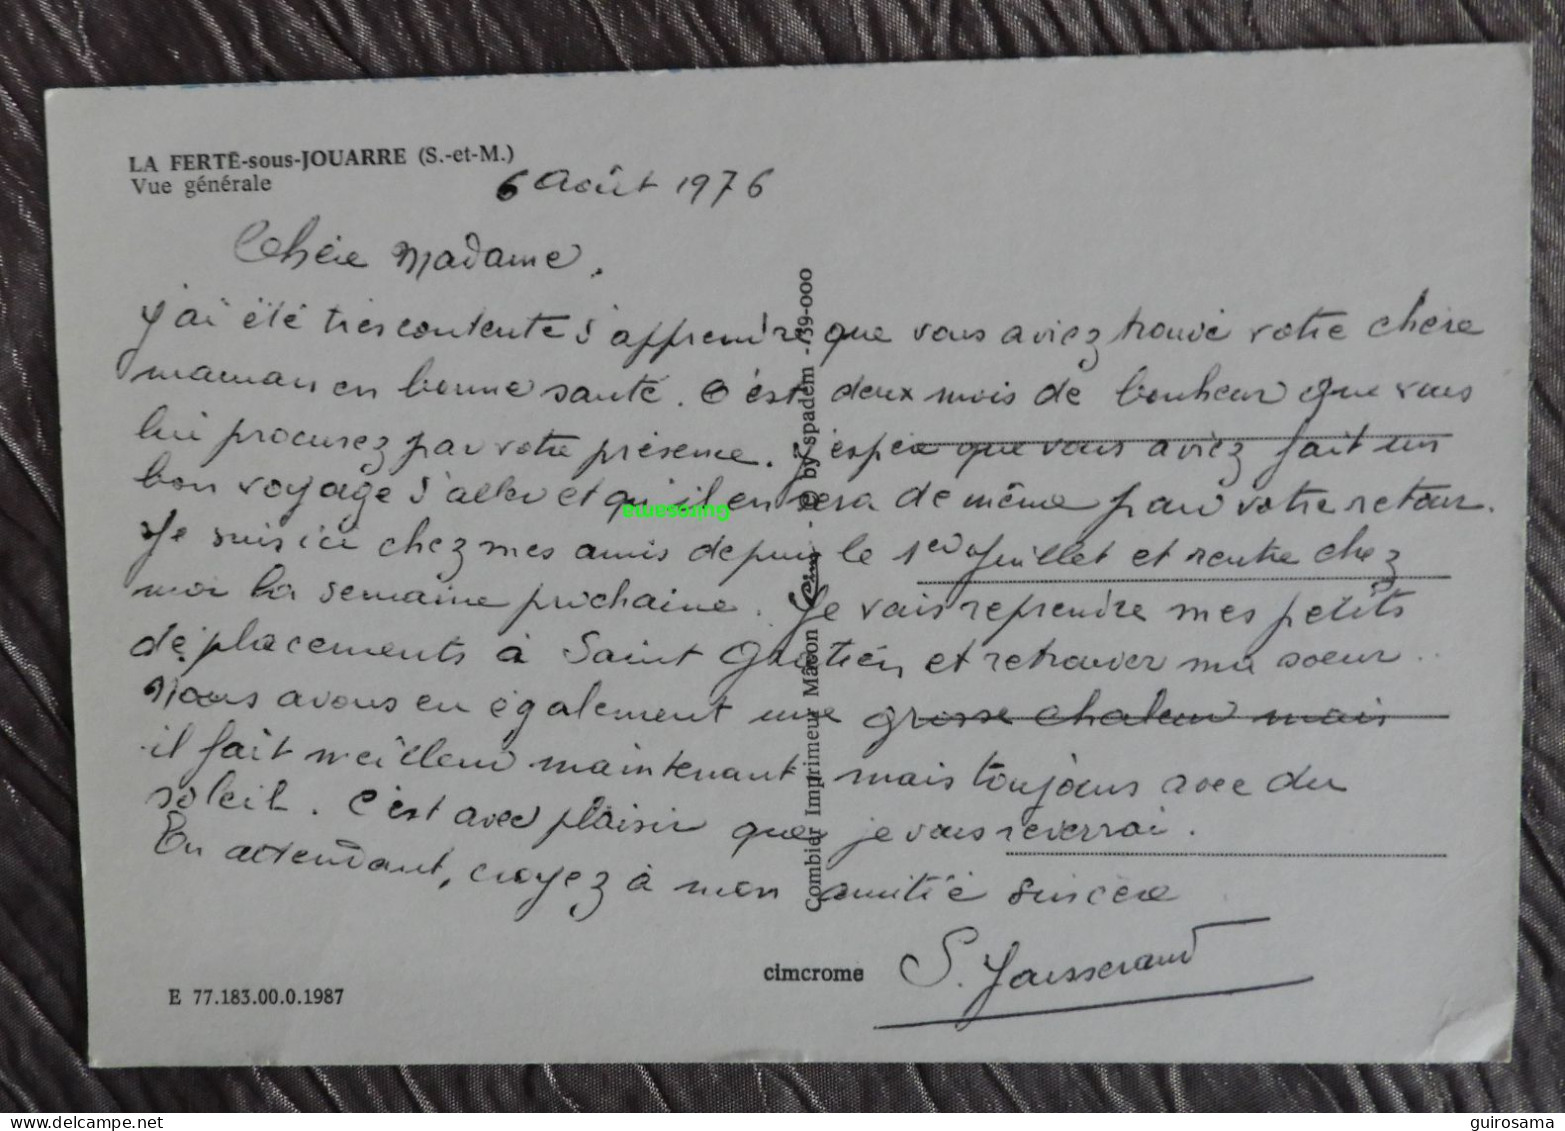 LA FERTÉ-sous-JOUARRE (S.-et-M.)
Vue générale
6 Août 1976
Chère Madame,
J'ai été très contente d'apprendre que vous aviez trouvé votre chère
maman en bonne santé. C'est deux mois de bonheur que vous
lui procurez par votre présence. J'espère que vous aviez fait un
bon voyage d'aller et qu'il en sera de même pour votre retour.
Je suis ici chez mes amis depuis le 1er Juillet et rentre chez
moi la semaine prochaine. Je vais reprendre mes petits
déplacements à Saint Gratien et retrouver ma soeur..
Nous avons eu également une grosse chaleur mais
il fait meilleur maintenant mais toujours avec du
soleil. C'est avec plaisir que je vous reverrai.
En attendant, croyez à mon amitié sincère
S. Jousserand
cimcrome
E 77.183.00.0.1987
Combier Imprimeur Mâcon - © by spadem - 39-000
Guirosama
guirosama